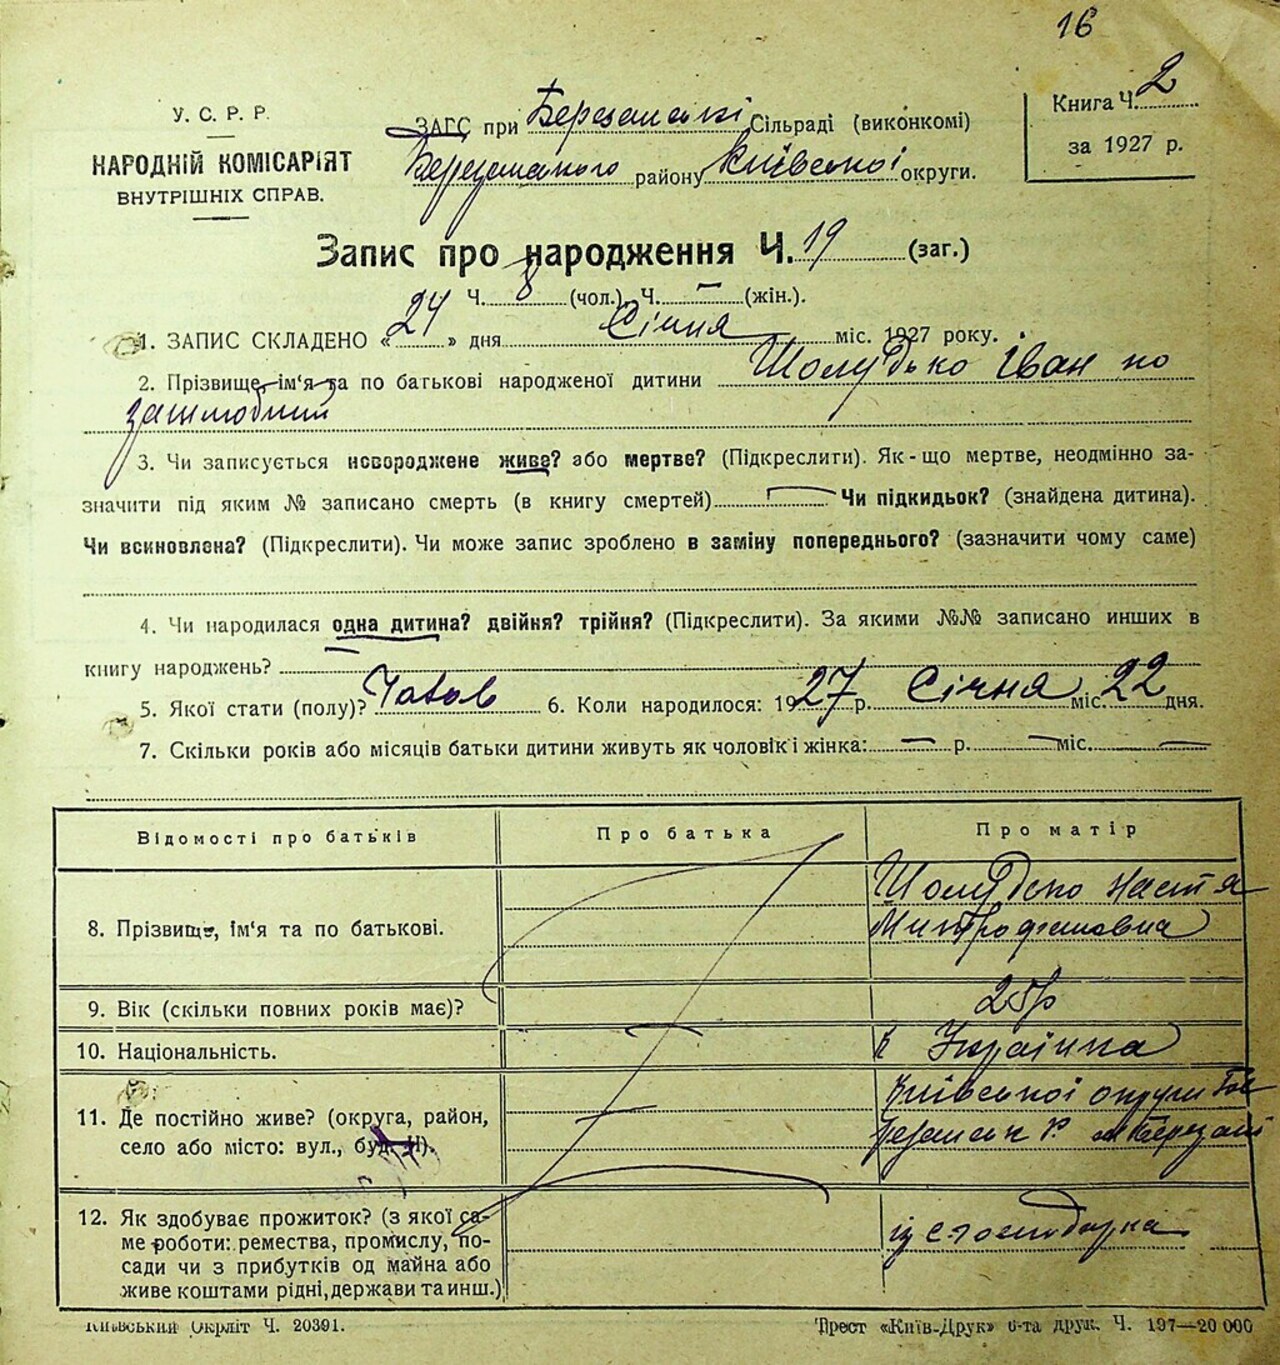 16
У. С. Р. Р.
НАРОДНІЙ КОМІСАРІЯТ
ВНУТРІШНІХ СПРАВ.
ЗАГС при Березанські Сільраді (виконкомі)
Березанського району Київської округи.
Книга Ч. 2
за 1927 р.
Запис про народження Ч. 19 (заг.)
Ч. 8 (чол.), Ч. — (жін.).
1. ЗАПИС СКЛАДЕНО «24» дня Січня міс. 1927 року.
2. Прізвище, ім'я та по батькові народженої дитини Шолудько Іван по
зашлюбний
3. Чи записується новороджене живе? або мертве? (Підкреслити). Як-що мертве, неодмінно за-
значити під яким № записано смерть (в книгу смертей) — Чи підкидьок? (знайдена дитина).
Чи всиновлена? (Підкреслити). Чи може запис зроблено в заміну попереднього? (зазначити чому саме)
4. Чи народилася одна дитина? двійня? трійня? (Підкреслити). За якими №№ записано инших в
книгу народжень? —
5. Якої стати (полу)? Чолов 6. Коли народилося: 1927 р. Січня міс. 22 дня.
7. Скільки років або місяців батьки дитини живуть як чоловік і жінка: — р. — міс. —
Відомості про батьків Про батька Про матір
8. Прізвище, ім'я та по батькові. Шолудько Настя
Митрофановна
9. Вік (скільки повних років має)? 25 р
10. Національність. — Українка
11. Де постійно живе? (округа, район, Київської округи Бе
село або місто: вул., буд. Н). резанськ Р. м Березані
12. Як здобуває прожиток? (з якої са- із с. господарка
ме роботи: ремества, промислу, по-
сади чи з прибутків од майна або
живе коштами рідні, держави та инш.)
Київський Окрліт Ч. 20391.
Трест «Київ-Друк» 6-та друк. Ч. 197—20 000